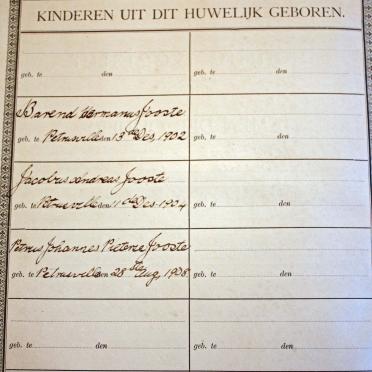 KINDEREN UIT DIT HUWELIJK GEBOREN.
geb. te den
geb. te den
Barend Hermanus Jooste
geb. te Petrusville den 13de Des. 1902
geb. te den
Jacobus Andreas Jooste
geb. te Petrusville den 11de Des. 1904
geb. te den
Petrus Johannes Pieterse Jooste
geb. te Petrusville den 28ste Aug. 1908
geb. te den
geb. te den
geb. te den